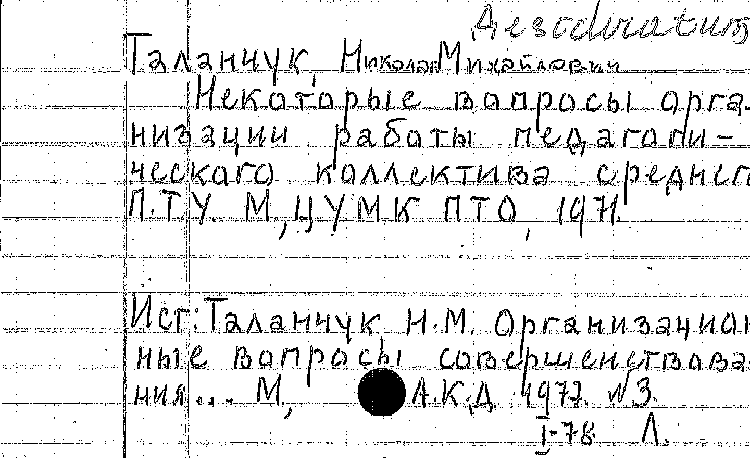 Desideratum
Таланчук, Николай Михайлович
Некоторые вопросы орга-
низации работы педагоги-
ческого коллектива среднего
П.ТУ. М, ЦУМК ПТО, 1971.
Ист: Таланчук Н.М. Организацион
ные вопросы совершенствова-
ния... М, А.К.Д 1977. №3.
I-78 Л.